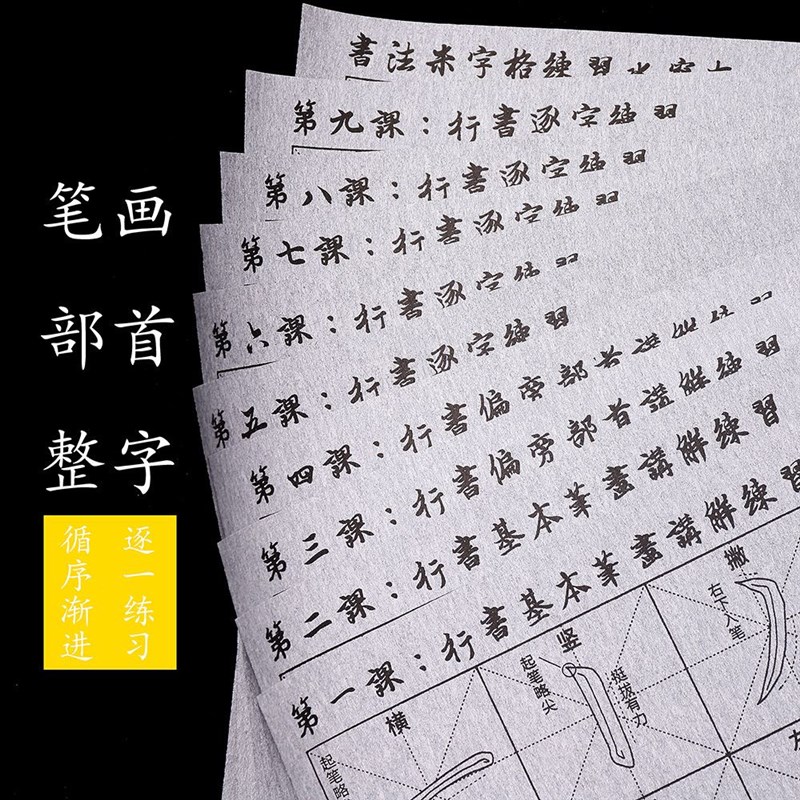 笔画
部首
整字
循序渐进
逐一练习
書法米字格練習
第九課:行書逐字練習
第八課:行書逐字練習
第七課:行書逐字練習
第六課:行書逐字練習
第五課:行書逐字練習
第四課:行書偏旁部首講解練習
第三課:行書偏旁部首講解練習
第二課:行書基本筆畫講解練習
第一課:行書基本筆畫講解練習
横
起笔略
竖
起笔略尖
挺拔有力
撇
右下入笔